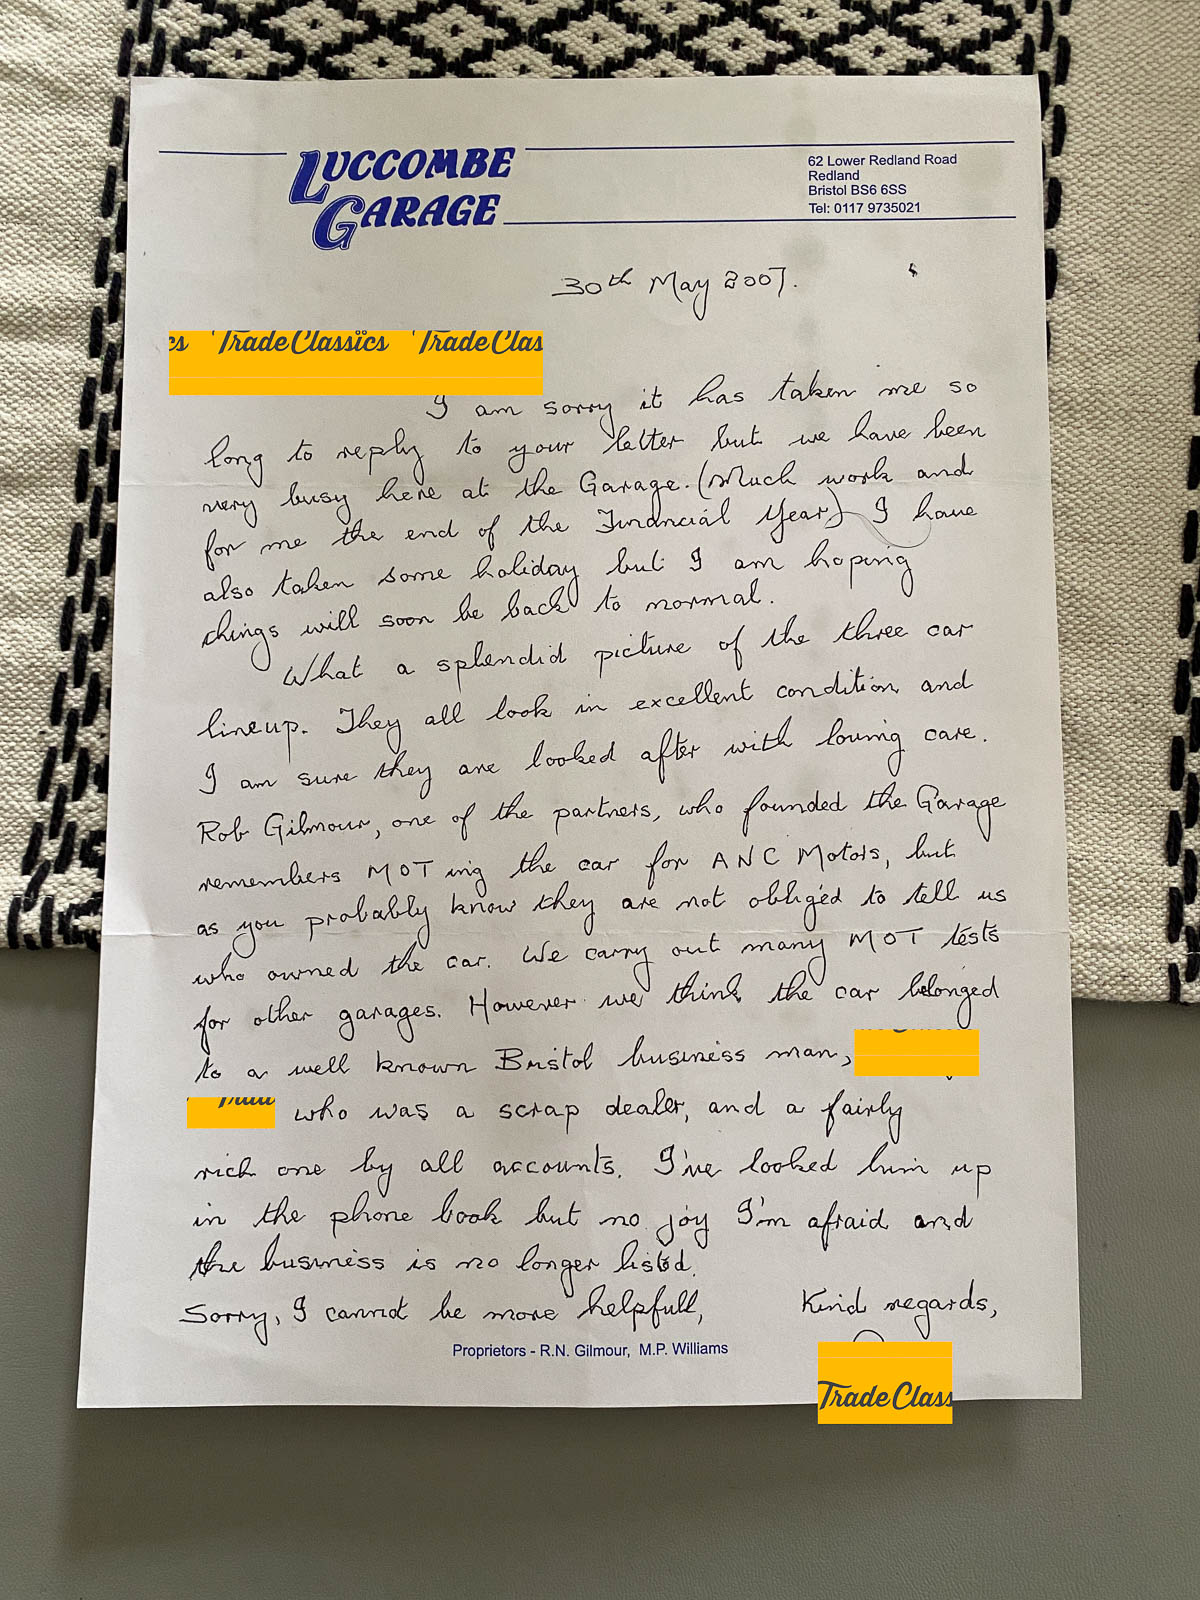 LUCCOMBE
GARAGE
62 Lower Redland Road
Redland
Bristol BS6 6SS
Tel: 0117 9735021
30th May 2007.
Trade Classics Trade Clas
I am sorry it has taken me so
long to reply to your letter but we have been
very busy here at the Garage. (Much work and
for me the end of the Financial Year) I have
also taken some holiday but I am hoping
things will soon be back to normal.
What a splendid picture of the three car
lineup. They all look in excellent condition and
I am sure they are looked after with loving care.
Rob Gilmour, one of the partners, who founded the Garage
remembers MOT ing the car for ANC Motors, but
as you probably know they are not obliged to tell us
who owned the car. We carry out many MOT tests
for other garages. However we think the car belonged
to a well known Bristol business man,
who was a scrap dealer, and a fairly
rich one by all accounts. I've looked him up
in the phone book but no joy I'm afraid and
the business is no longer listed.
Sorry, I cannot be more helpfull,
Kind regards,
Proprietors - R.N. Gilmour, M.P. Williams
Trade Class